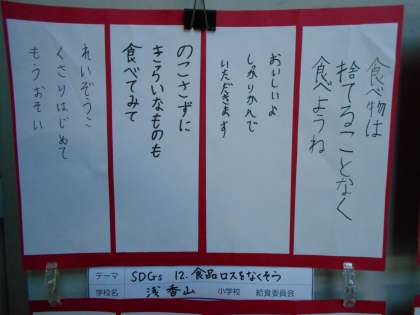 食べ物は
捨てることなく
食べようね
おいしいよ
しっかりかんで
いただきます
のこさずに
きらいなものも
食べてみて
れいぞうこ
くさりはじめて
もうおそい
テーマ SDGs 12.食品ロスをなくそう
学校名 浅香山 小学校 給食委員会